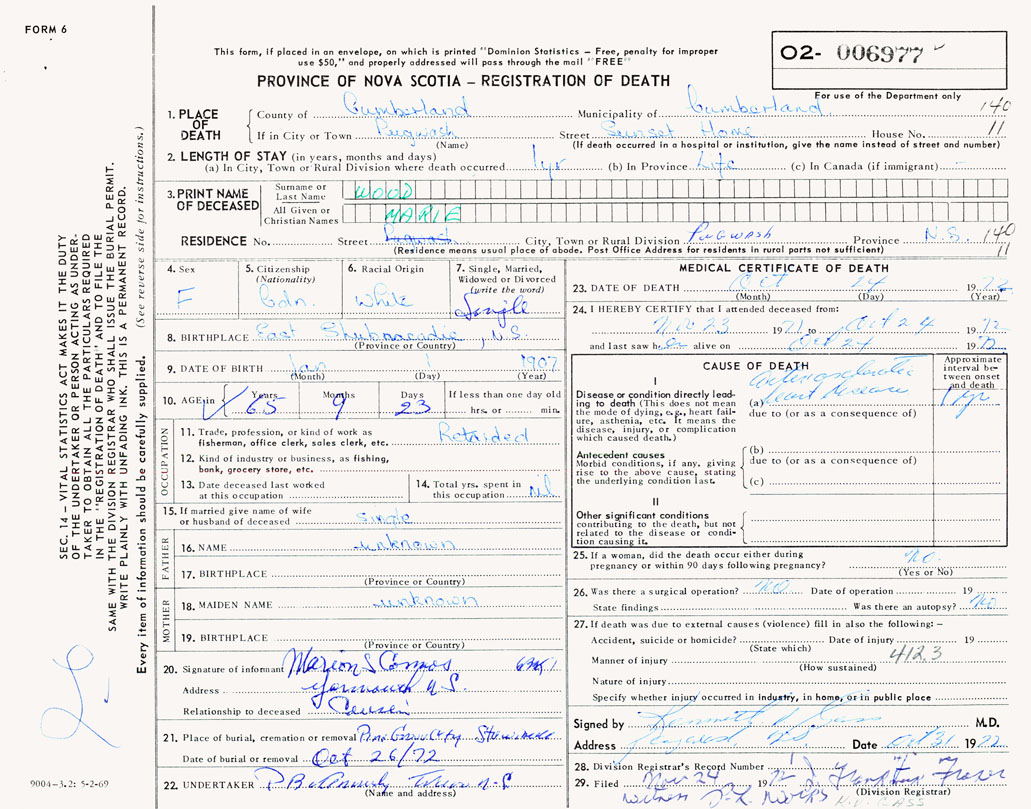 FORM 6
This form, if placed in an envelope, on which is printed "Dominion Statistics – Free, penalty for improper
use $50," and properly addressed will pass through the mail "FREE"
02- 006977
PROVINCE OF NOVA SCOTIA – REGISTRATION OF DEATH
For use of the Department only
1. PLACE OF DEATH
County of Cumberland Municipality of Cumberland 140
If in City or Town Pugwash Street Sunset Home House No. 11
(Name) (If death occurred in a hospital or institution, give the name instead of street and number)
2. LENGTH OF STAY (in years, months and days)
(a) In City, Town or Rural Division where death occurred 1 yr (b) In Province Life (c) In Canada (if immigrant)
3. PRINT NAME OF DECEASED
Surname or Last Name WOOD
All Given or Christian Names MARIE
RESIDENCE No. Street Pugwash City, Town or Rural Division Pugwash Province N.S. 140
(Residence means usual place of abode. Post Office Address for residents in rural parts not sufficient) 11
4. Sex F
5. Citizenship (Nationality) Cdn.
6. Racial Origin White
7. Single, Married, Widowed or Divorced (write the word) Single
8. BIRTHPLACE East Shubenacadie, N.S.
(Province or Country)
9. DATE OF BIRTH Jan 1 1907
(Month) (Day) (Year)
10. AGE in Years 65 Months 9 Days 23 If less than one day old
hrs. or min.
OCCUPATION
11. Trade, profession, or kind of work as
fisherman, office clerk, sales clerk, etc. Retarded
12. Kind of industry or business, as fishing,
bank, grocery store, etc.
13. Date deceased last worked
at this occupation
14. Total yrs. spent in
this occupation Nil
15. If married give name of wife
or husband of deceased single
FATHER
16. NAME unknown
17. BIRTHPLACE
(Province or Country)
MOTHER
18. MAIDEN NAME unknown
19. BIRTHPLACE
(Province or Country)
20. Signature of informant Marion S
Address Yarmouth N.S.
Relationship to deceased
21. Place of burial, cremation or removal
Date of burial or removal Oct 26/72
22. UNDERTAKER
(Name and address)
MEDICAL CERTIFICATE OF DEATH
23. DATE OF DEATH Oct 1972
(Month) (Day) (Year)
24. I HEREBY CERTIFY that I attended deceased from:
Nov 23 1971 to Oct 24 1972
and last saw her alive on Oct 24 1972
CAUSE OF DEATH
Approximate interval between onset and death
I
Disease or condition directly lead-
ing to death (This does not mean
the mode of dying, e.g., heart fail-
ure, asthenia, etc. It means the
disease, injury, or complication
which caused death.)
(a) Arteriosclerotic heart disease 1 yr
due to (or as a consequence of)
Antecedent causes
Morbid conditions, if any, giving
rise to the above cause, stating
the underlying condition last.
(b)
due to (or as a consequence of)
(c)
II
Other significant conditions
contributing to the death, but not
related to the disease or condi-
tion causing it.
25. If a woman, did the death occur either during
pregnancy or within 90 days following pregnancy? No.
(Yes or No)
26. Was there a surgical operation? No Date of operation 19
State findings Was there an autopsy? No
27. If death was due to external causes (violence) fill in also the following: –
Accident, suicide or homicide? Date of injury 19
(State which) 4123
Manner of injury
(How sustained)
Nature of injury
Specify whether injury occurred in industry, in home, or in public place
Signed by Kenneth M.D.
Address Date Oct 31 1972
28. Division Registrar's Record Number
29. Filed Nov 24 1972
(Division Registrar)
SEC. 14 – VITAL STATISTICS ACT MAKES IT THE DUTY
OF THE UNDERTAKER OR PERSON ACTING AS UNDER-
TAKER TO OBTAIN ALL THE PARTICULARS REQUIRED
IN THE "REGISTRATION OF DEATH" AND TO FILE THE
SAME WITH THE DIVISION REGISTRAR WHO SHALL ISSUE THE BURIAL PERMIT.
WRITE PLAINLY WITH UNFADING INK. THIS IS A PERMANENT RECORD.
Every item of information should be carefully supplied. (See reverse side for instructions.)
9004-3.2: 5-2-69